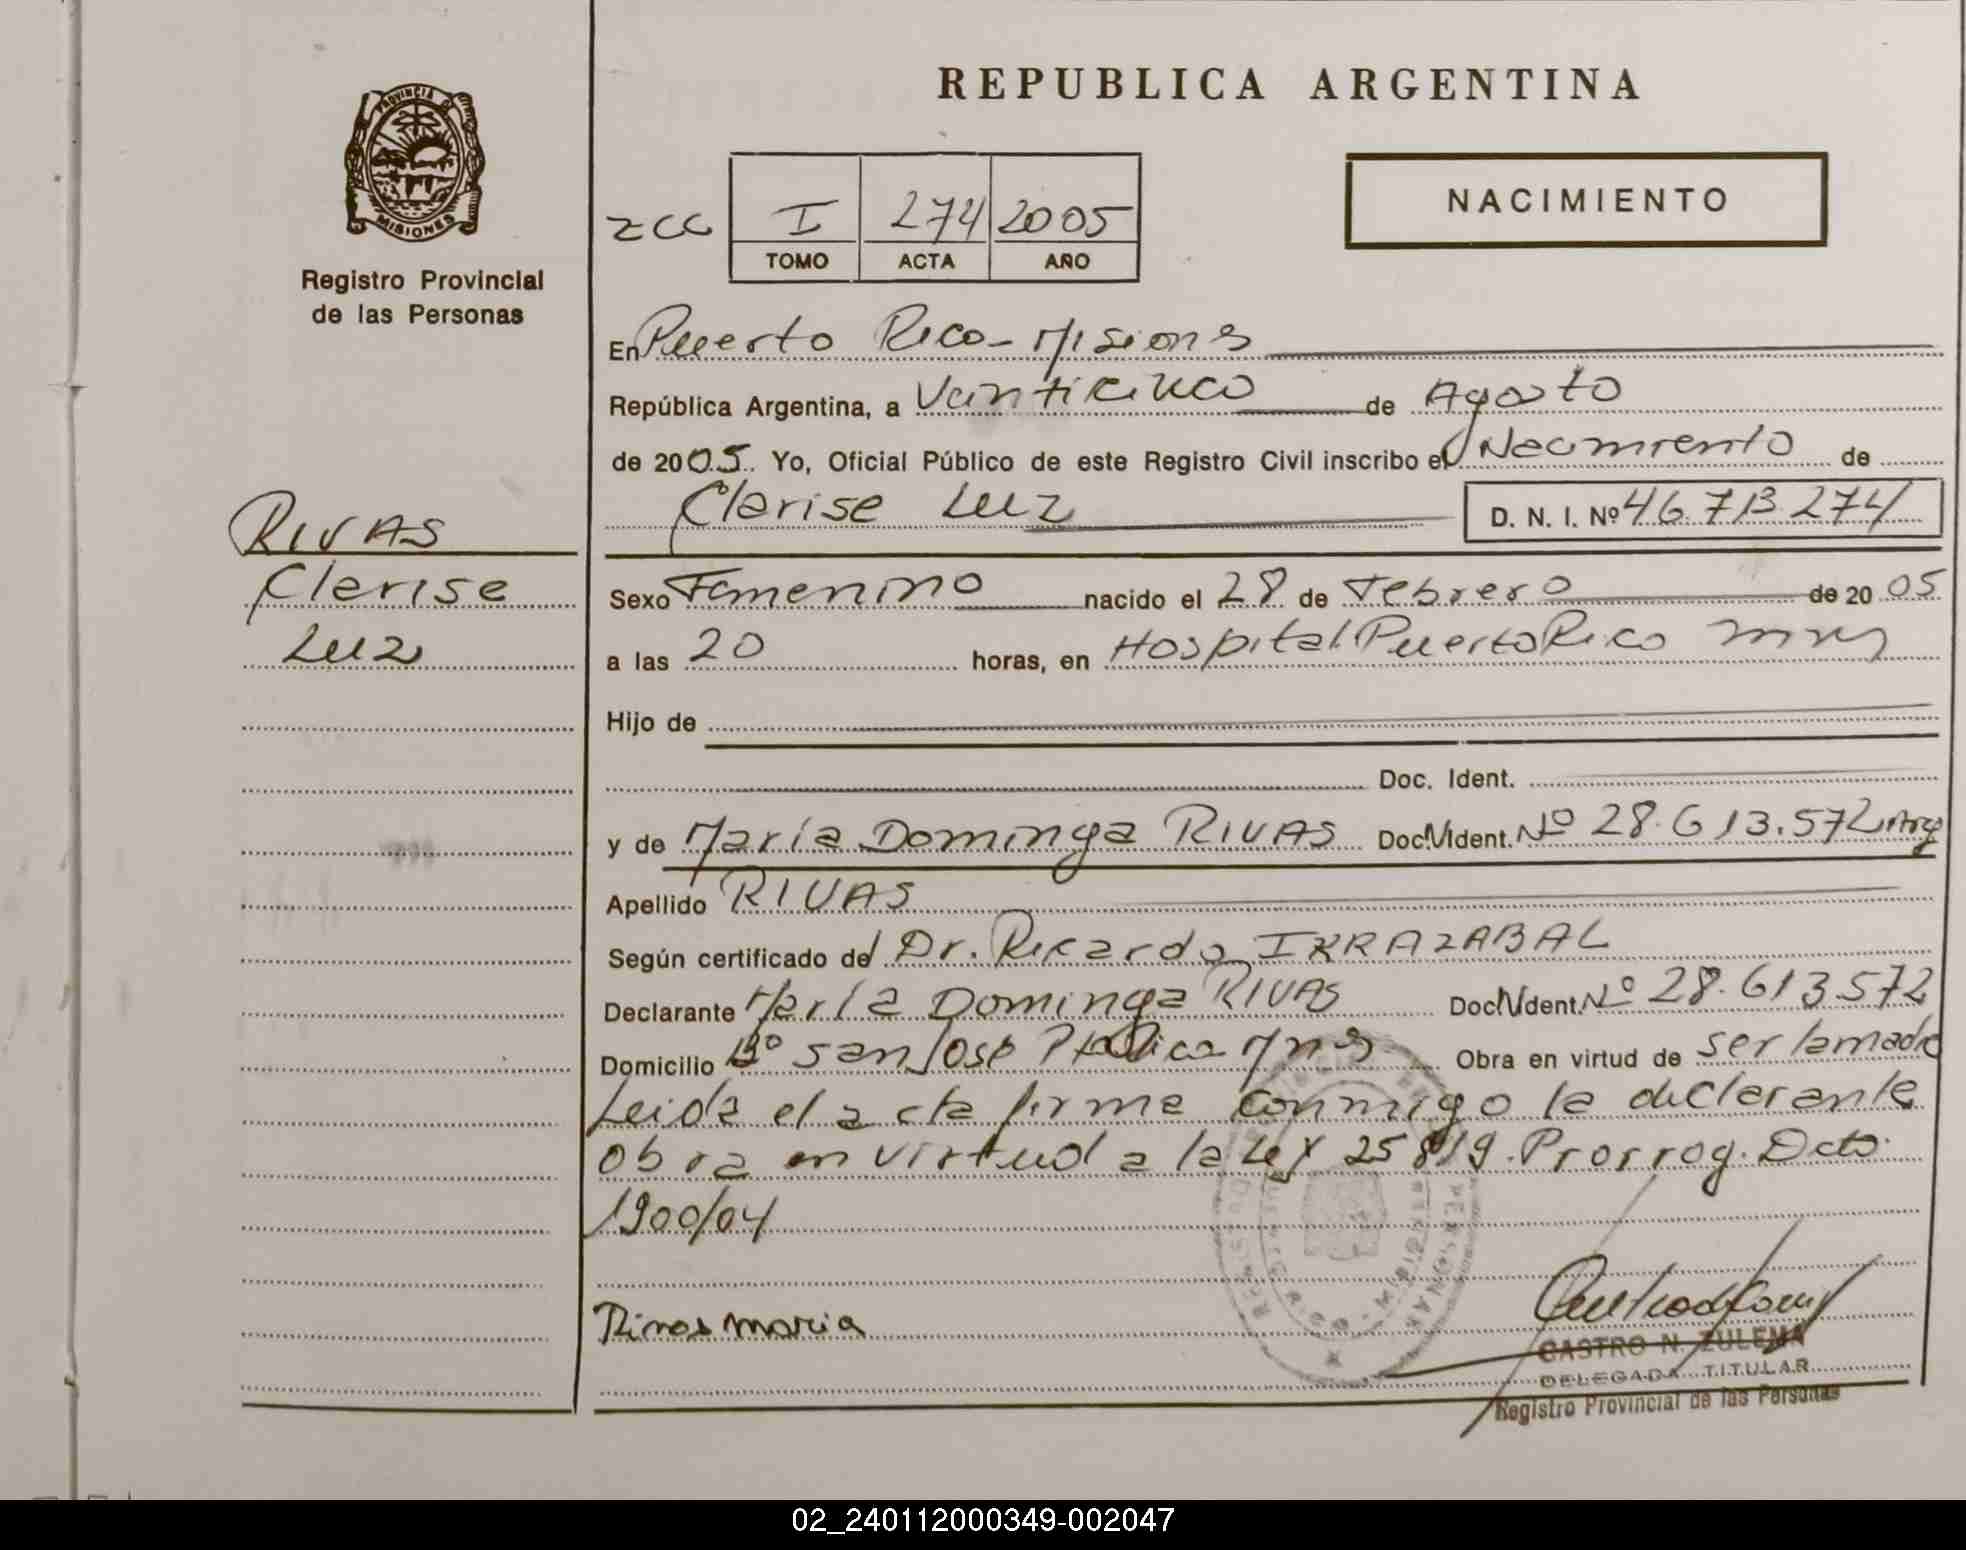 REPUBLICA ARGENTINA
PROVINCIA D
MISIONES
Registro Provincial
de las Personas
NACIMIENTO
ZCC I 274 2005
TOMO ACTA AÑO
En Puerto Rico - Misiones
República Argentina, a Veinticinco de Agosto
de 2005. Yo, Oficial Público de este Registro Civil inscribo el Nacimiento de
Clarise Luz D. N. I. Nº 46.713.274
RIVAS
Clarise
Luz
Sexo Femenino nacido el 28 de Febrero de 2005
a las 20 horas, en Hospital Puerto Rico Mnes
Hijo de
Doc. Ident.
y de María Dominga RIVAS Doc. Ident. Nº 28.613.572 Arg
Apellido RIVAS
Según certificado del Dr. Ricardo IRRAZABAL
Declarante María Dominga RIVAS Doc. Ident. Nº 28.613572
Domicilio Bº San José Pto Rico Mnes Obra en virtud de ser lamadre
Leida el acta firma conmigo la declarante
obra en virtud a la Ley 25819. Prorrog. Dcto.
1900/04
Rivas maria
CASTRO N. ZULEMA
DELEGADA TITULAR
Registro Provincial de las Personas
02_240112000349-002047